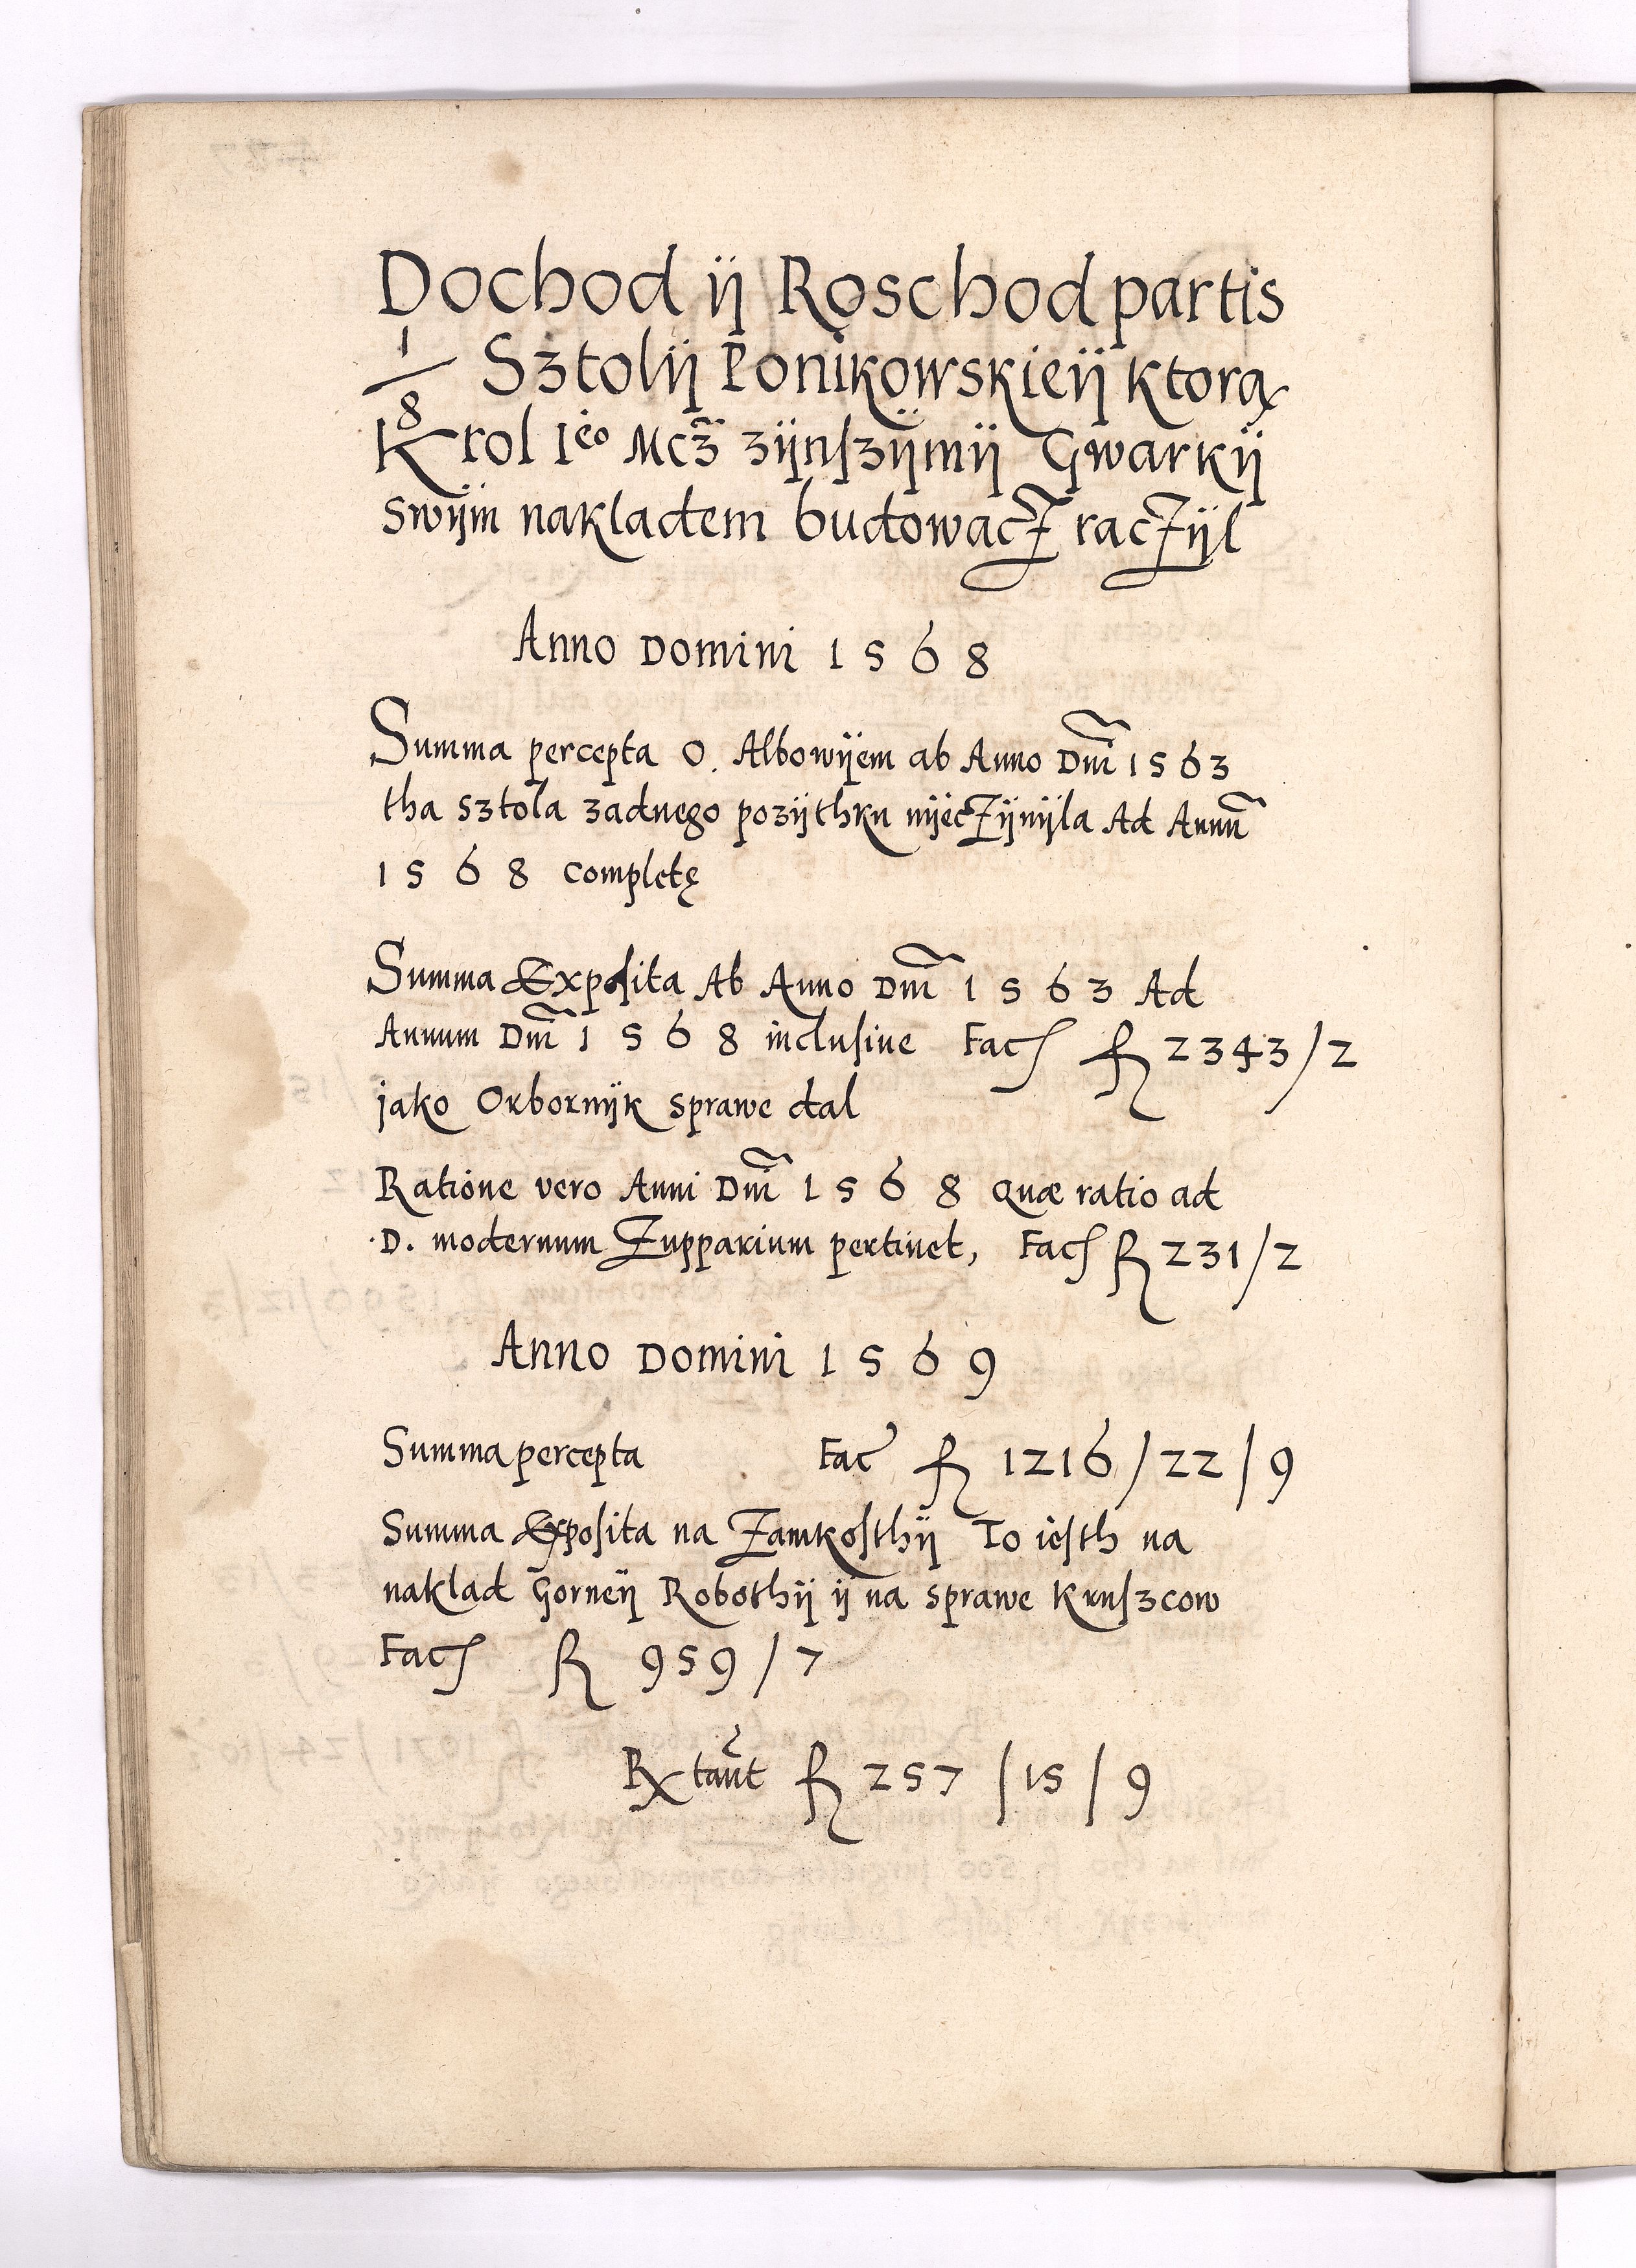 Dochod ÿ Roschod partis
1/8 Sztolÿ Ponikowskieÿ ktorą
Krol Ieo Mcz̃ zÿnszÿmÿ Gwarkÿ
swÿm nakladem budowacz raczÿl
Anno Domini 1568
Summa percepta 0. Albowÿem ab Anno Dm̃ 1563
tha sztola zadnego pozÿthku nÿeczÿnÿla Ad Annũ
1568 completę
Summa Exposita Ab Anno Dm̃ 1563 Ad
Annum Dm̃ 1568 inclusiue Fac fl 2343/2
jako Orbornÿk sprawe dal
Ratione vero Anni Dm̃ 1568 Quæ ratio ad
D. modernum Zupparium pertinet, Fac fl 231/2
Anno Domini 1569
Summa percepta Fac fl 1216/22/9
Summa Exposita na Zamkosthÿ To iesth na
naklad Gorneÿ Robothÿ ÿ na sprawe Kruszcow
Fac fl 959/7
Rxtañt fl 257/15/9